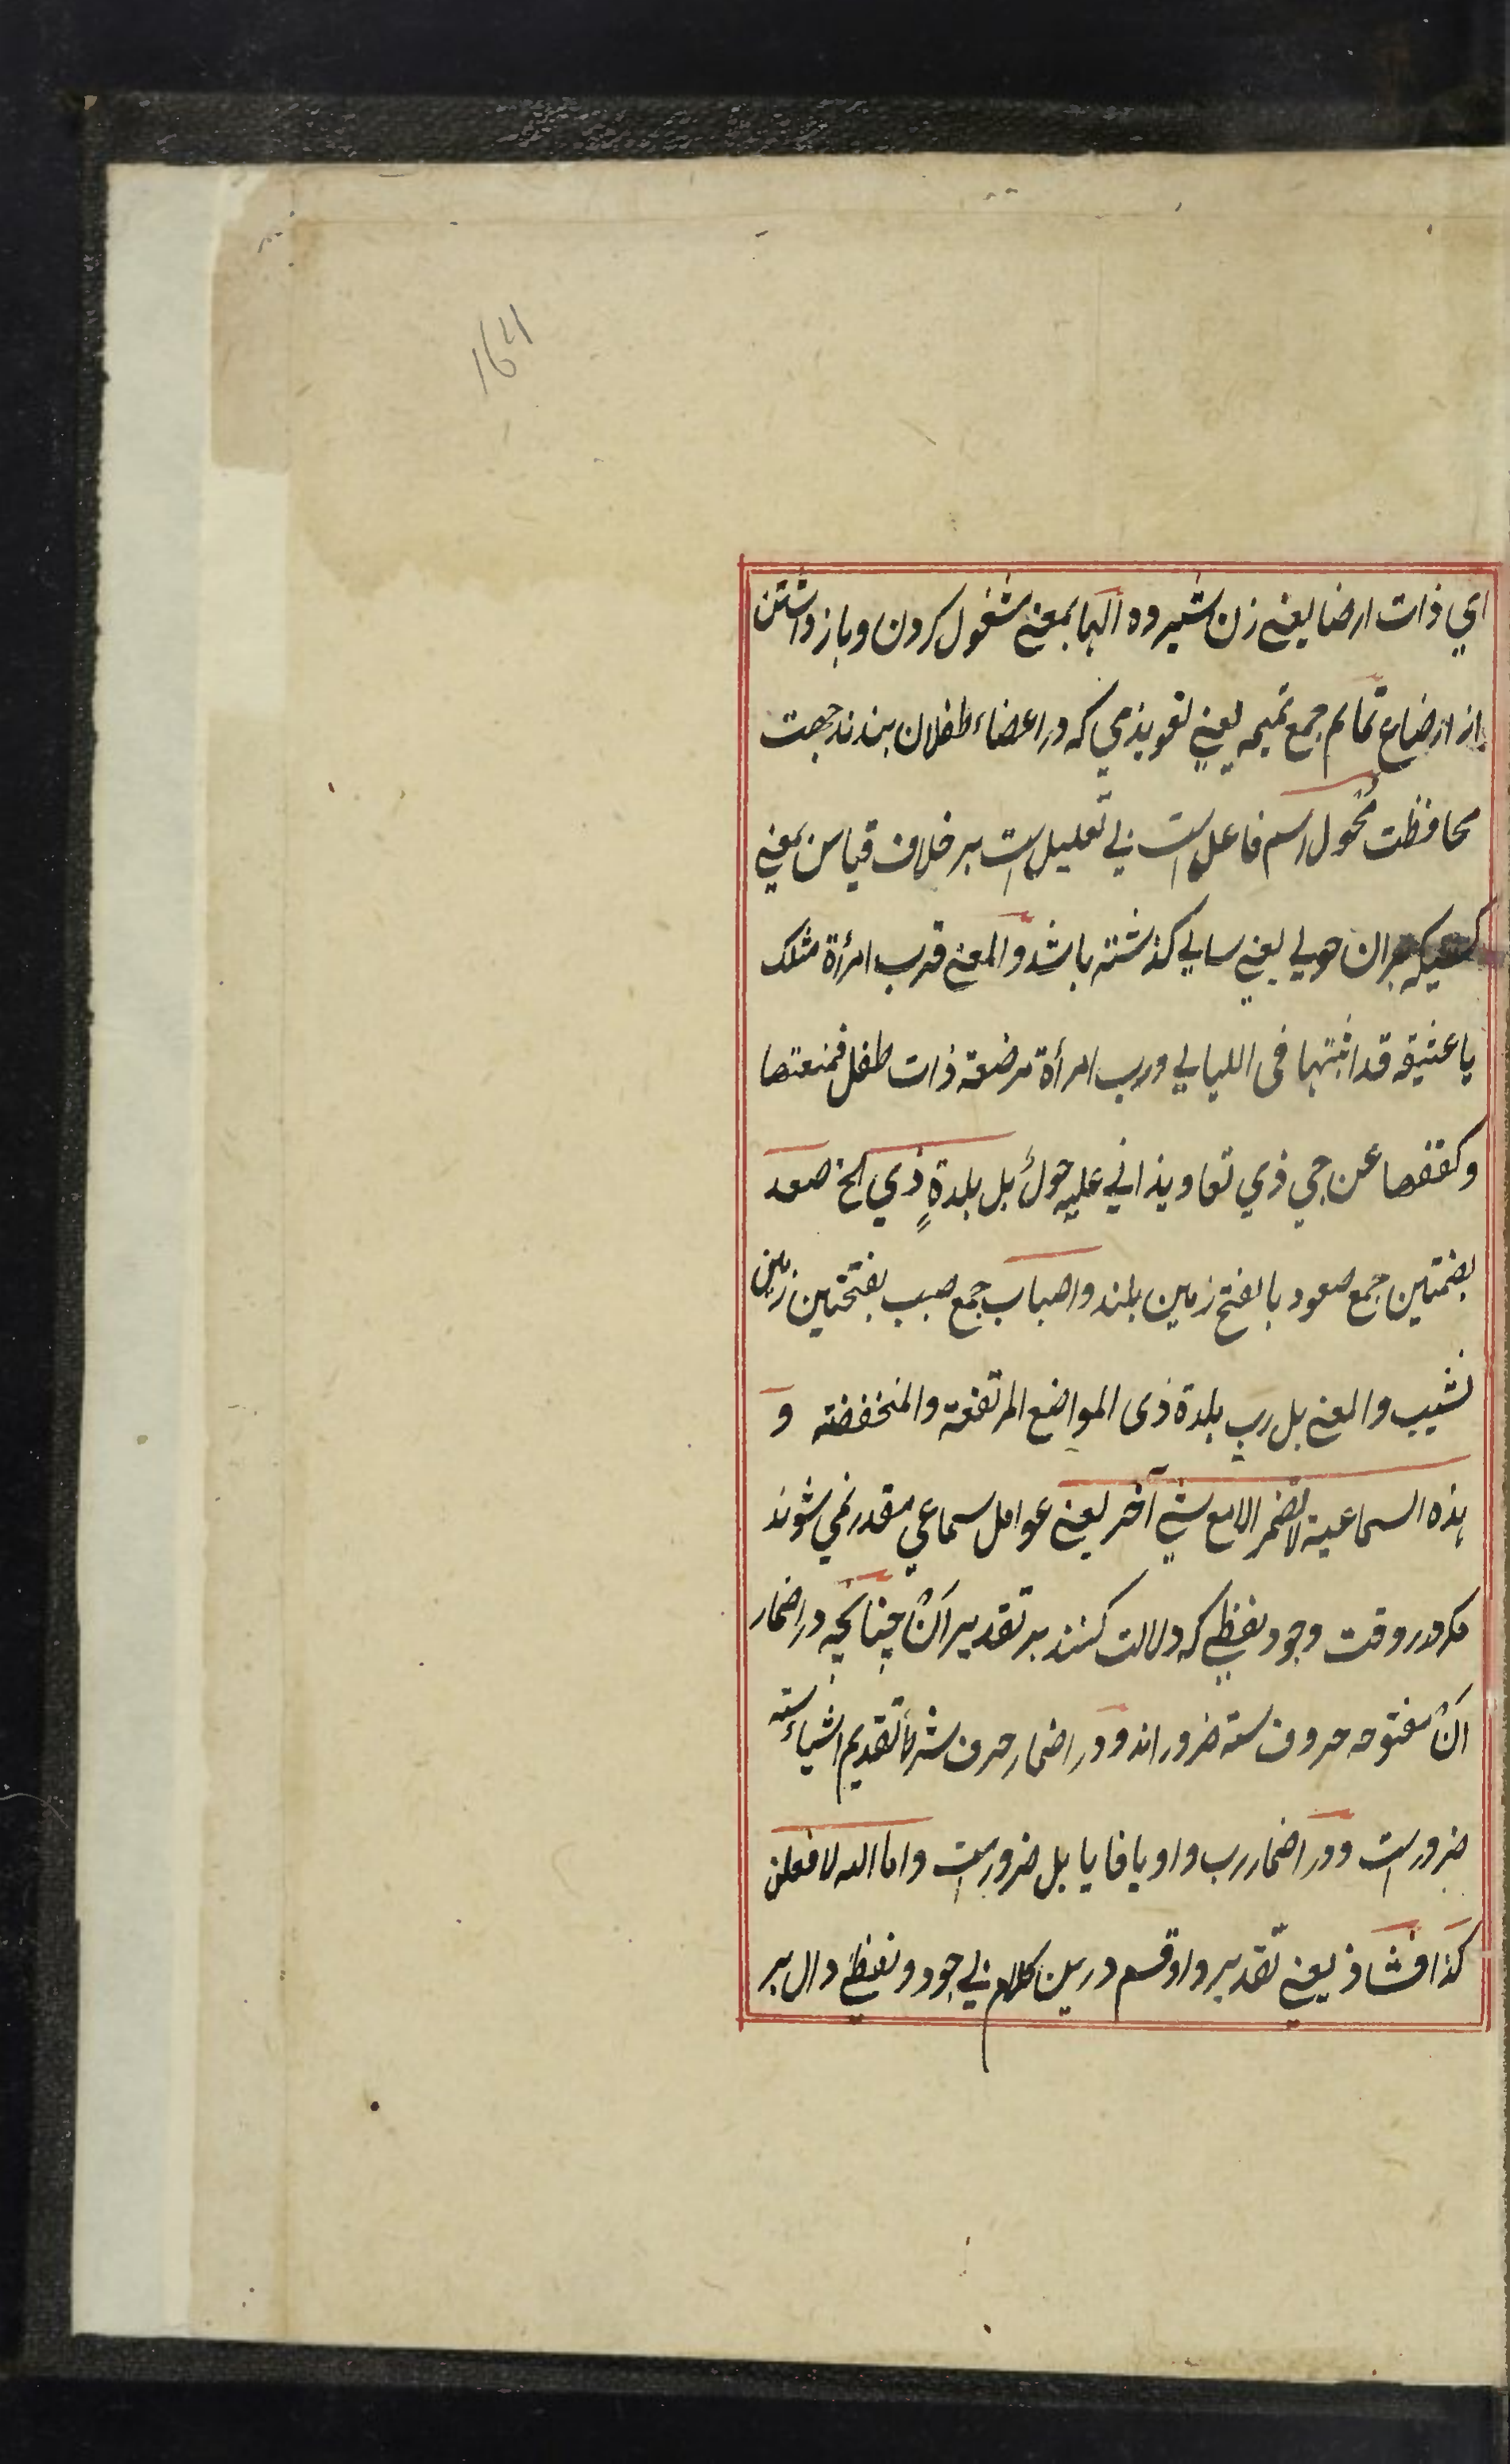 164
اي ذات ارضا یعنی زن شیرده الها بمعنی مشغول کردن و باز داشتن
از ارضاع تمایم جمع تمیمه یعنی تعویذی که در اعضاء طفلان بندند جهت
محافظت مُحول اسم فاعل است بی تعلیل است بر خلاف قیاس بمعنی
کسیکه بران حولی یعنی سالی کذشته باشد والمعنی قد رب امرأة مثلک
یا عنیقه قد اتیتها فی اللیالی ورب امرأة مرضعة ذات طفل فمنعتها
وکففها عن حی ذی تعاویذ اتی علیه حول بل بلدةٍ ذی الخ صعد
بضمتین جمع صعود بالفتح زمین بلند واصباب جمع صبب بفتحتین زمین
نشیب والمعنی بل رب بلدة ذی المواضع المرتفعة والمنخفضة و
هذه السماعیة لا تضمر الا مع شیٔ آخر یعنی عوامل سماعی مقدر نمی شوند
مکر در وقت وجود لفظی که دلالت کنند بر تقدیر آن چنانچه در اضمار
اَنْ مفتوحه حروف سته ضرور اند ودر اضمار حرف شرط تقدیم اشیاء سته
ضرور است ودر اضمار رب واو یا فا یا بل ضرور است واما الله لافعلن
کذا فشاذ یعنی تقدیر واو قسم درین کلام بی وجود لفظی دال بر